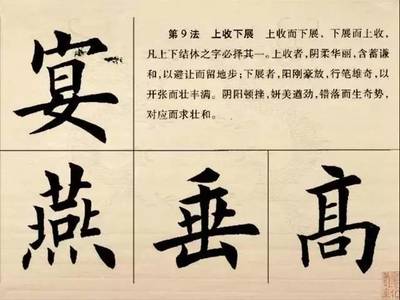 第9法 上收下展 上收而下展、下展而上收，
凡上下结体之字必择其一。上收者，阴柔华丽，含蓄谦
和，以避让而留地步；下展者，阳刚豪放，行笔雄奇，以
开张而壮丰满。阴阳顿挫，妍美遒劲，错落而生奇势，
对应而求壮和。
宴
燕 垂 髙